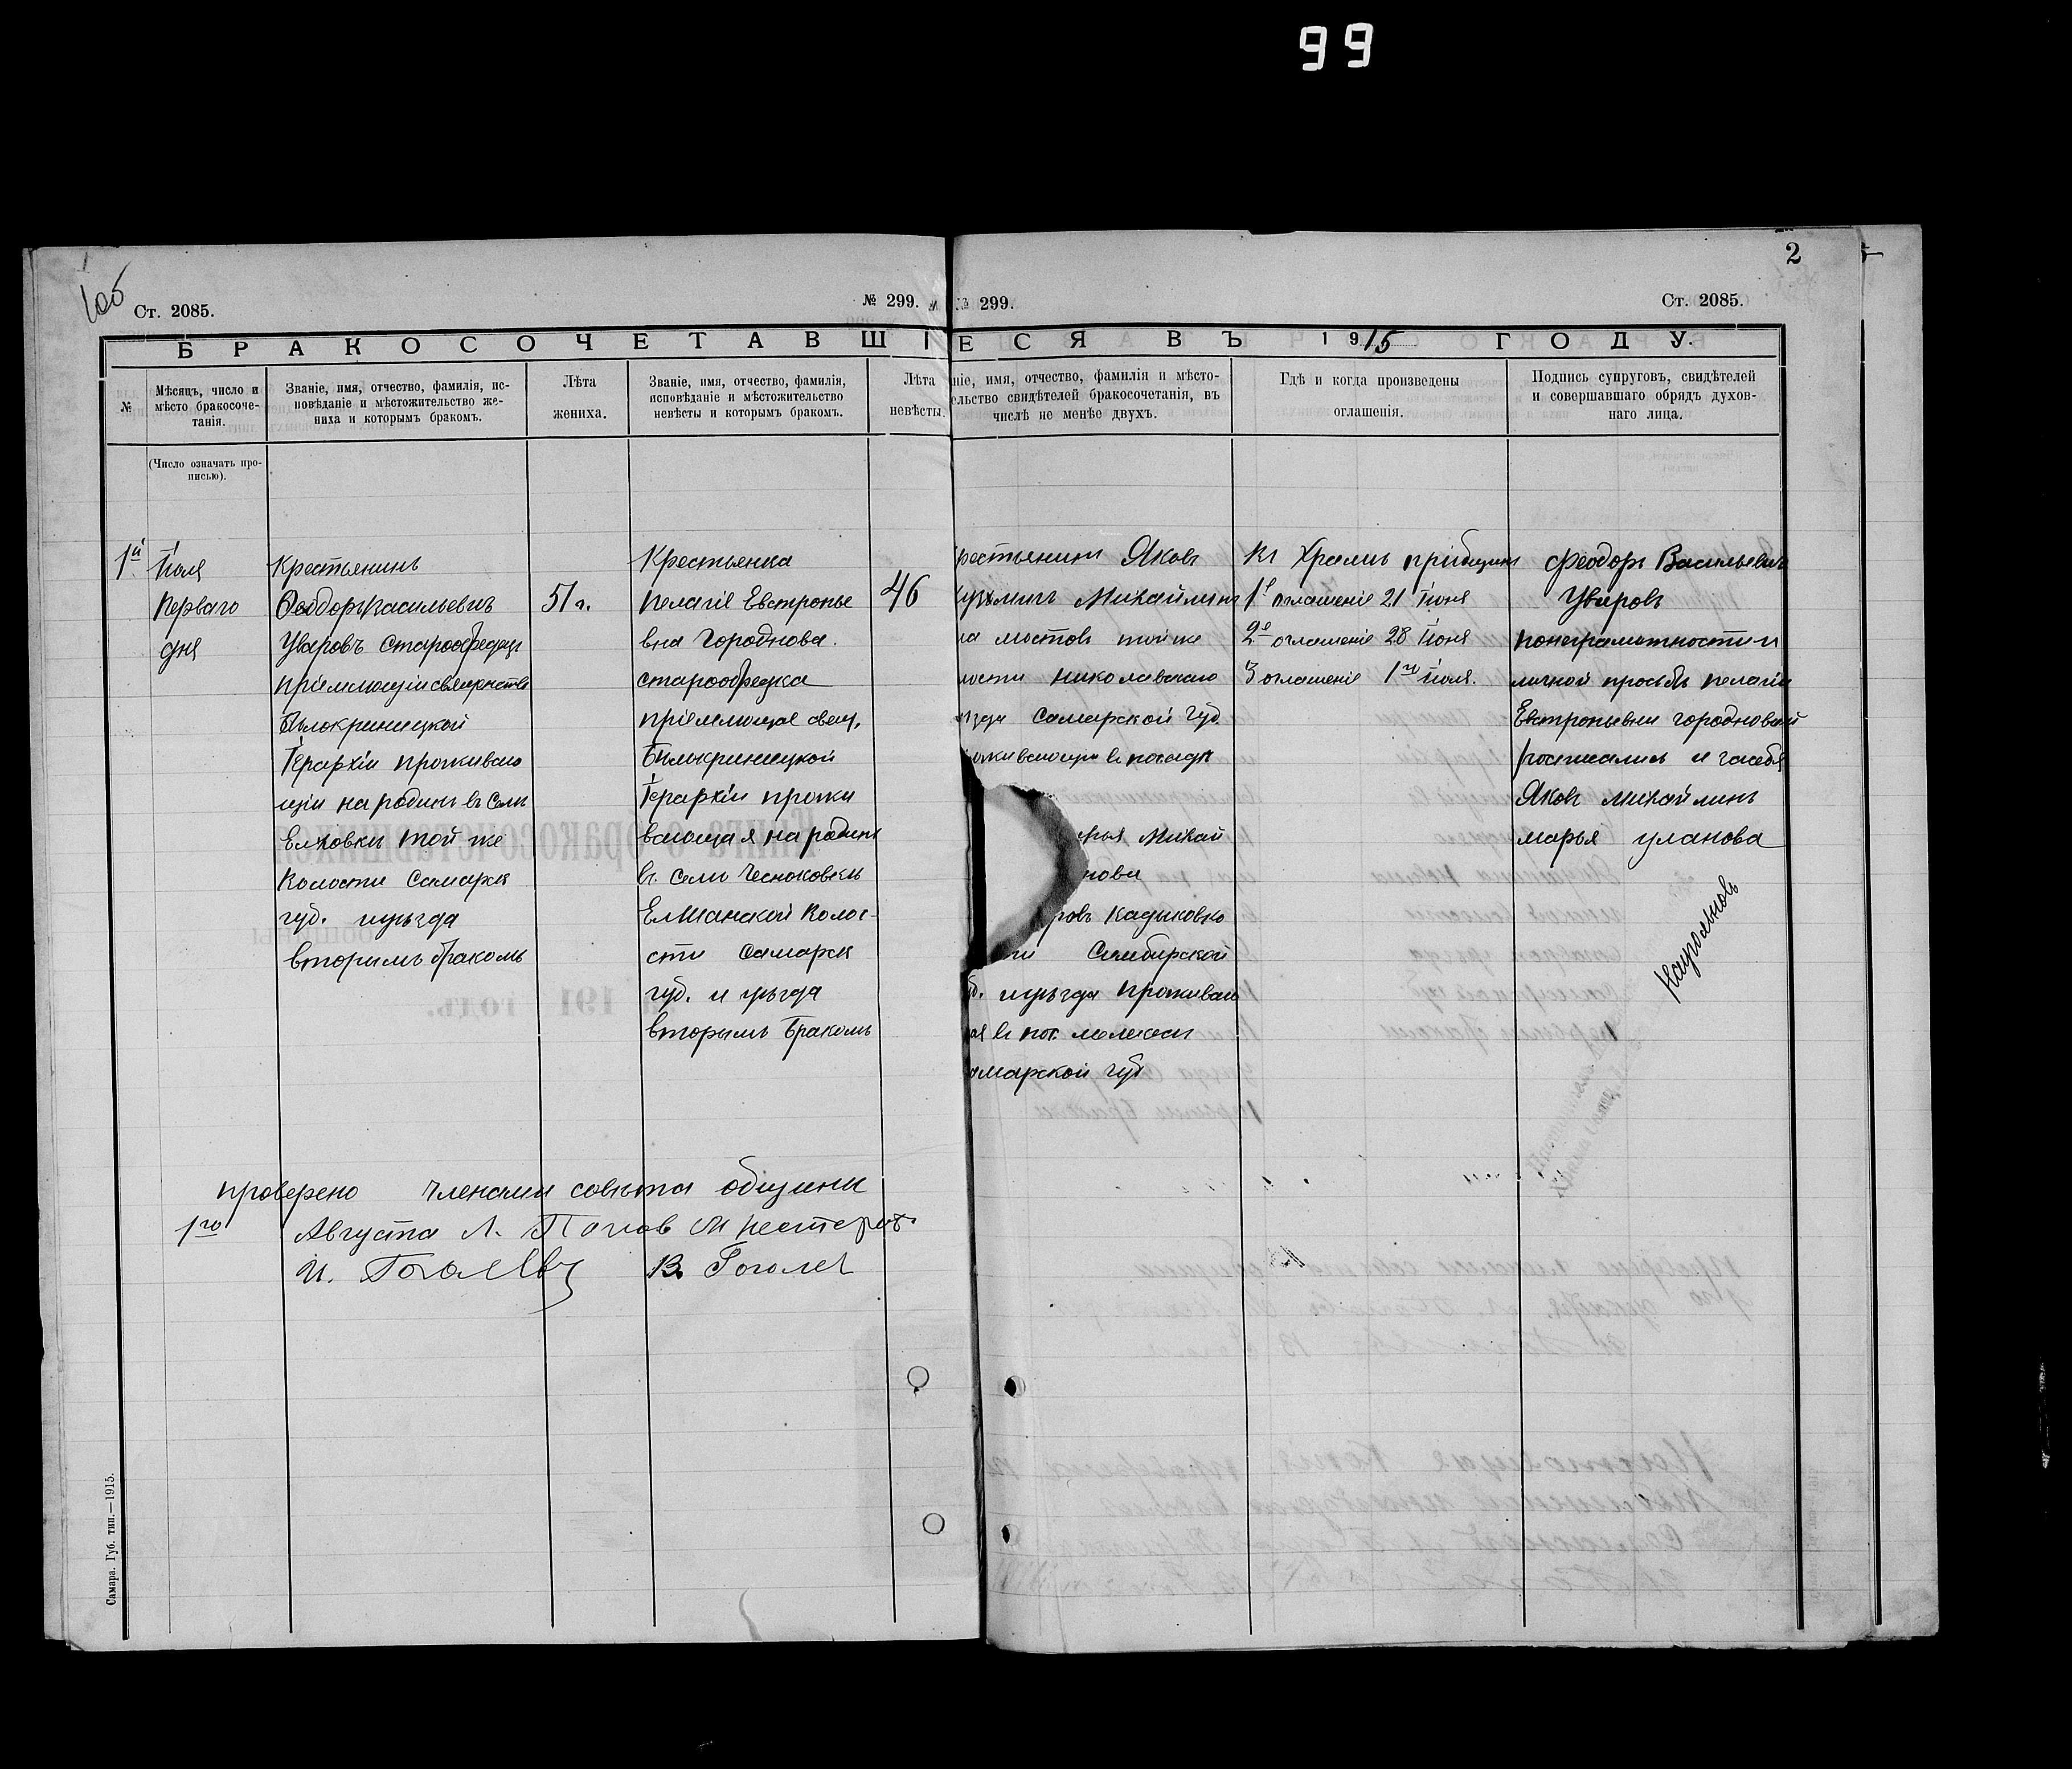 99
2
Ст. 2085.
№ 299.
№ 299.
Ст. 2085.
БРАКОСОЧЕТАВШІЕСЯ ВЪ 1915 ГОДУ.
№
Мѣсяцъ, число и
мѣсто бракосоче-
танія.
(Число означать про-
писью).
Званіе, имя, отчество, фамилія, ис-
повѣданіе и мѣстожительство же-
ниха и которымъ бракомъ.
Лѣта
жениха.
Званіе, имя, отчество, фамилія,
исповѣданіе и мѣстожительство
невѣсты и которымъ бракомъ.
Лѣта
невѣсты.
ніе, имя, отчество, фамилія и мѣсто-
ельство свидѣтелей бракосочетанія, въ
числѣ не менѣе двухъ.
Гдѣ и когда произведены
оглашенія.
Подпись супруговъ, свидѣтелей
и совершавшаго обрядъ духов-
наго лица.
1й
Іюля
Перваго
дня
Крестьянинъ
Ѳеодоръ Васильевъ
Уваровъ Старообрядец
Бѣлокриницкой
Іерархіи проживаю
щіи на родинѣ въ Селѣ
Елховки той же
Волости Самарск
губ. и уѣзда
вторымъ бракомъ
51 г.
Крестьянка
Пелагіе Евстропье
вна Городнова.
старообрядка
пріемлющае свящ.
Бѣлокриницкой
Іерархіи прожи
вающая на родинѣ
въ Селѣ Чесноковкѣ
Елшанской Волос-
сти Самарск
губ. и уѣзда
вторымъ Бракомъ
46
рестьянинъ Яковъ
Михайлинъ
мостовъ той же
лости Николаевскаго
Самарской губ
въ посадѣ
Михай
Симбирской
уѣзда Проживаю
въ пос. мелекес
амарской губ
Въ Храмѣ
1е оглашеніе 21 Іюня
2е оглашеніе 28 Іюня
3 оглашеніе 1го Іюля.
Феодоръ Васильевъ
Уваровъ
по неграмотности и
личной просьбѣ пелагіи
Евстропьевны городновой
росписались и за себя
Яковъ Михайлинъ
марья уланова
проверено членами совѣта общины
1го Августа Л. Попов М Нестеров
И. Гоголевъ В. Гоголев
Самара. Губ. тип.—1915.